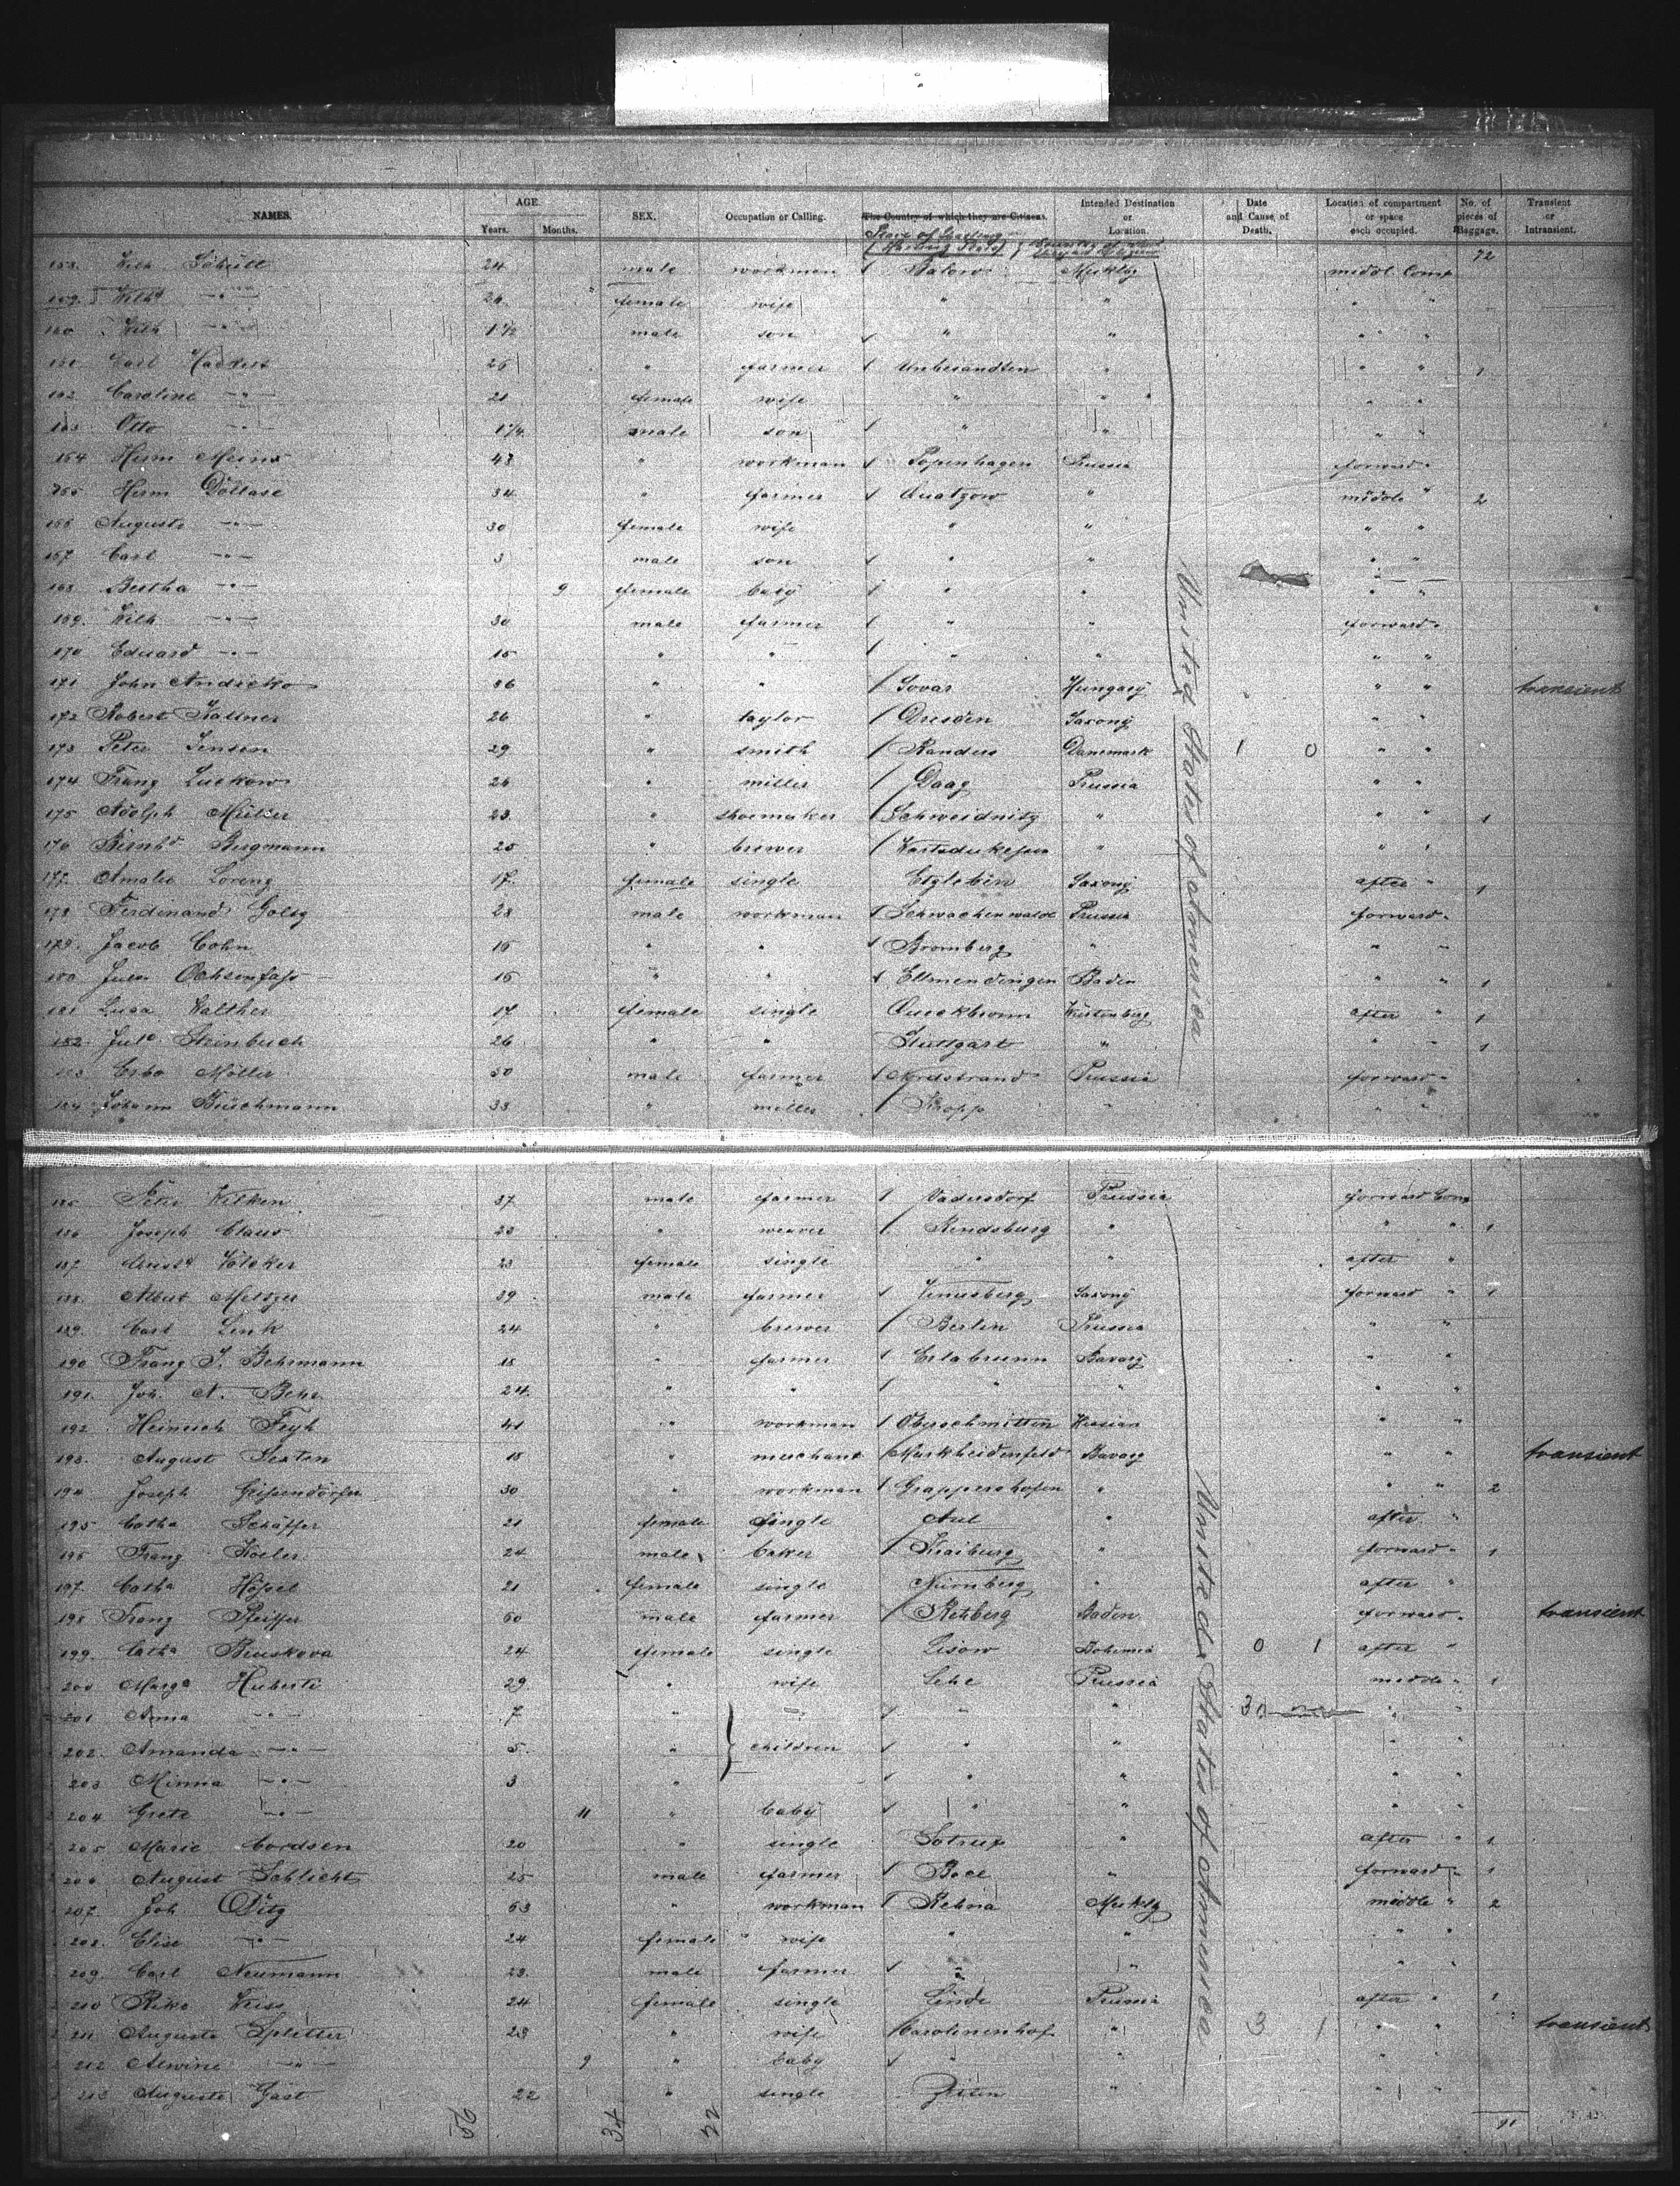 NAMES. AGE. Years. Months. SEX. Occupation or Calling. The Country of which they are Citizens. Intended Destination or Location. Date and Cause of Death. Location of compartment or space each occupied. No. of pieces of Baggage. Transient or Intransient.
72
158. Wilh Schütt 24 male workman Malow Mecklbg middl. Comp
159. Wilh " 26 female wife " " " "
160 Wilh " 1½ male son " " " "
161 Carl Hackert 25 " farmer Unbesandten " " " 1
162 Caroline " 21 female wife " " " "
163 Otto " 1¼ male son " " " "
164 Herm Meins 43 " workman Popenhagen Prussia forward "
165 Herm Dollase 34 " farmer Quatzow " middle " 2
166 Auguste " 30 female wife " " " "
167 Carl " 3 male son " " " "
168 Bertha " 9 female baby " " " "
169. Wilh " 30 male farmer " " forward "
170 Eduard " 15 " " " " " "
171 John Andreko 36 " " Sovar Hungary " " transient
172 Robert Kattner 26 " taylor Dresden Saxony " "
173 Peter Jensen 29 " smith Randers Danemark 1 0 " "
174 Franz Luckow 26 " miller Daag Prussia " "
175 Adolph Müller 23 " shoemaker Schweidnitz " " " 1
176 Bernhd Bergmann 25 " brewer " " "
177. Amalie Lorenz 17 female single Etzleben Saxony after " 1
178 Ferdinand Goltz 28 male workman Schwachenwalde Prussia forward "
179. Jacob Cohn 16 " " Bromberg " " "
180 Juls Ochsenfass 16 " " Ellmendingen Baden " " 1
181 Luisa Walther 17 female single Quickborn Würtenberg after " 1
182 Jule Steinbuch 26 " " Stuttgart " " " 1
183 Erbo Möller 30 male farmer Nordstrand Prussia forward "
184 Johann Bruchmann 33 " miller Kropp " " "
United States of America
185 Peter Wilken 37 male farmer Vadersdorf Prussia forward Comp
186 Joseph Claus 23 " weaver Rendsburg " " " 1
187 Völcker 23 female single " " after "
188. Albert Metzger 39 male farmer Venusberg Saxony forward " 1
189. Carl Link 24 " brewer Berlin Prussia " "
190 Franz J. Behrmann 18 " farmer Erlabrunn Bavary " "
191. Joh. A. Behr 24 " " " " " "
192 Heinrich Fryh 41 " workman Oberschmitten Hessian " "
193. August Sexten 18 " merchant Markheidenfeld Bavary " " transient
194 Joseph Grissendörfer 30 " workman Grappershofen " " " 2
195 Catha Schäffer 21 female single Aul " after "
196 Franz Koeler 24 male baker Kraiburg " forward " 1
197. Catha Hössel 21 female single Nürnberg " after "
198 Franz Pfeiffer 60 male farmer Rehberg Baden forward " transient
199. Catha Bruskova 24 female single Lisow Bohemia 0 1 after "
200 Marga Huberti 29 " wife Lehe Prussia middle " 1
201 Anna " 7 " " " 30 " "
202. Amanda " 5. " children " " " "
203 Minna " 3 " " " " "
204 Grete " 11 " baby " " " "
205 Marie Cordsen 20 " single Sotrup " after " 1
206 August Schlicht 25 male farmer Boel " forward " 1
207. Joh Ditz 63 " workman Rehna Mecklbg middle " 2
208. Elise " 24 female wife " " " "
209. Carl Neumann 23. male farmer " " "
210 Rike Weiss 24 female single Linde Prussia after " 1
211 Auguste Splitter 23 " wife Carolinenhof " 3 1 " " transient
212 Alwine " 9 " baby " " "
213 Auguste Gast 22 " single Zitten " " "
United States of America
34 22 91